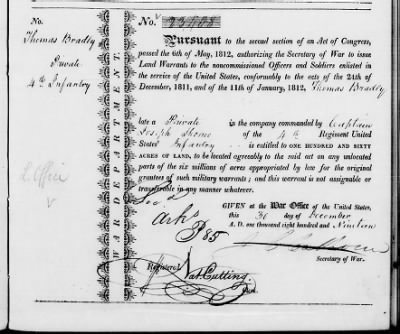 Thomas Bradly
Private
4th Infantry
L. Office
V
WAR DEPARTMENT.
No.
Pursuant to the second section of an Act of Congress,
passed the 6th of May, 1812, authorizing the Secretary of War to issue
Land Warrants to the noncommissioned Officers and Soldiers enlisted in
the service of the United States, conformably to the acts of the 24th of
December, 1811, and of the 11th of January, 1812, Thomas Bradly
late a Private in the company commanded by Captain
Joseph of the 4th Regiment United
States' Infantry is entitled to ONE HUNDRED AND SIXTY
ACRES OF LAND, to be located agreeably to the said act on any unlocated
parts of the six millions of acres appropriated by law for the original
grantees of such military warrants; and this warrant is not assignable or
transferable in any manner whatever.
GIVEN at the War Office of the United States,
this 30 day of December
A. D. one thousand eight hundred and Nineteen
Secretary of War.
Arks
P 85
Registered Nat. Cutting